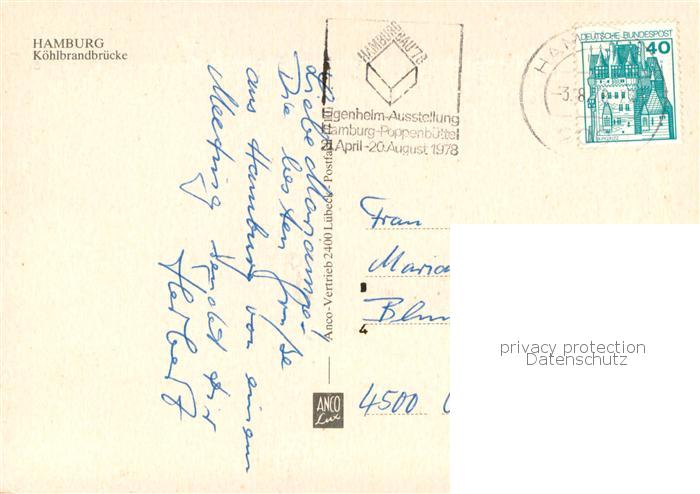 HAMBURG
Köhlbrandbrücke
HAMBURG BAU'78
Eigenheim-Ausstellung
Hamburg-Poppenbüttel
21. April - 20. August 1978
HAM
-3.8.
DEUTSCHE BUNDESPOST
40
Liebe Marianne!
Die besten Grüße
aus Hamburg von einem
Meeting sendet Dir
Herbert
Anco-Vertrieb 2400 Lübeck · Postfach
ANCO
Lux
Frau
Maria
Blu
4
4500
privacy protection
Datenschutz